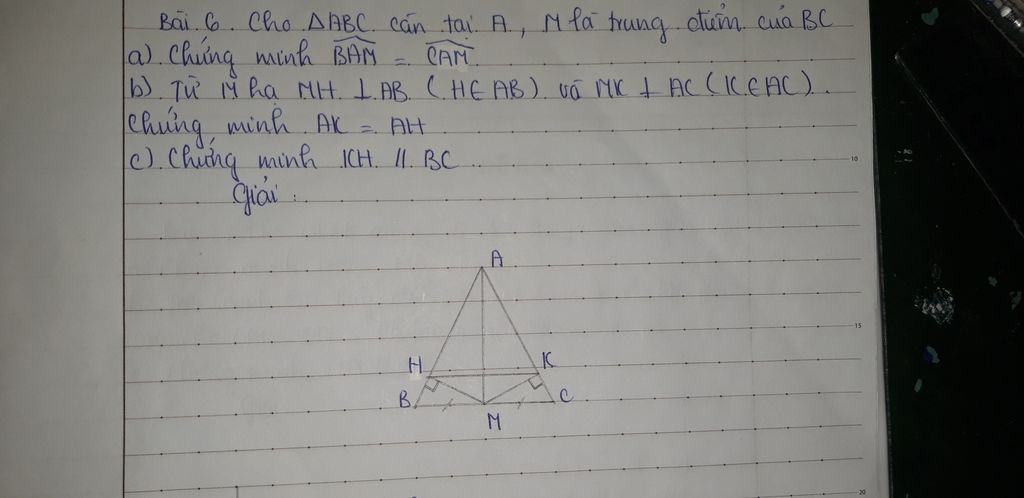 Bài 6. Cho ΔABC cân tại A, M là trung điểm của BC
a) Chứng minh BAM = CAM.
b) Từ M hạ MH ⊥ AB (H∈AB) và MK ⊥ AC (K∈AC).
Chứng minh AK = AH
c) Chứng minh KH // BC
Giải:
A
H K
B C
M
10
15
20